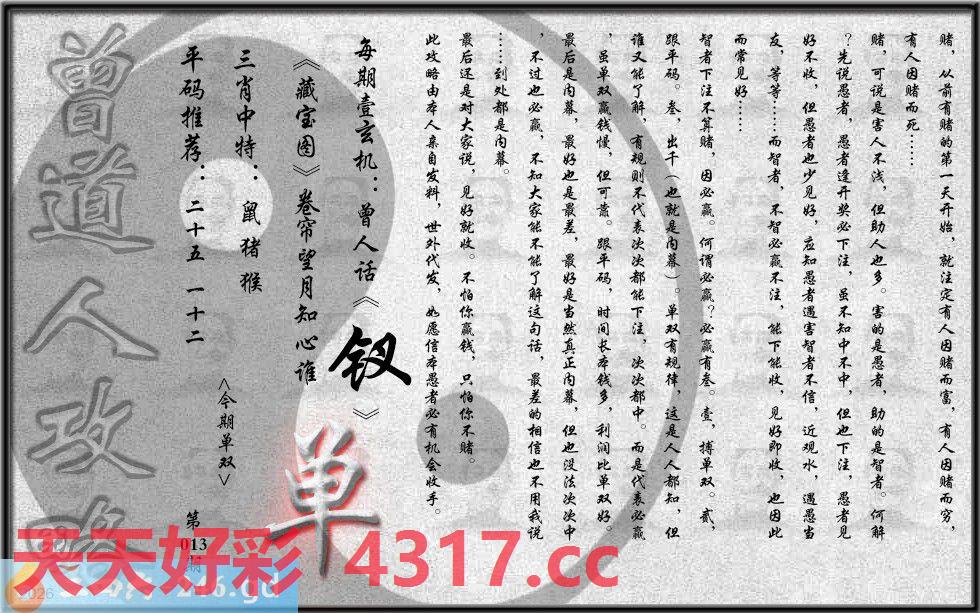 赌，从前有赌的第一天开始，就注定有人因赌而富，有人因赌而穷，
有人因赌而死……
赌，可说是害人不浅，但助人也多。害的是愚者，助的是智者。何解
？先说愚者，愚者逢开奖必下注，虽不知中不中，但也下注，愚者见
好不收，但愚者也少见好，应知愚者遇害智者不信，近观水，遇愚当
友，等等……而智者，不智必赢不注，能下能收，见好即收，也因此
而常见好……
智者下注不算赌，因必赢。何谓必赢？必赢有叁。壹，搏单双。贰，
跟平码。叁，出千（也就是内幕）。单双有规律，这是人人都知，但
谁又能了解，有规则不代表次次都能下注，次次都中。而是代表必赢
，虽单双赢钱慢，但可靠。跟平码，时间长本钱多，利润比单双好。
最后是内幕，最好也是最差，最好是当然真正内幕，但也没法次次中
，不过也必赢，不知大家能不能了解这句话，最差的相信也不用我说
……到处都是内幕。
最后还是对大家说，见好就收。不怕你赢钱，只怕你不赌。
此攻略由本人亲自发料，世外代发，如愿信本愚者必有机会收手。
每期壹玄机：曾人话《钗》
《藏宝图》卷帘望月知心谁
单
三肖中特：鼠猪猴
<今期单双>
平码推荐：二十五 一十二
第
013
期
曾道人攻略
天天好彩 4317.cc
2026